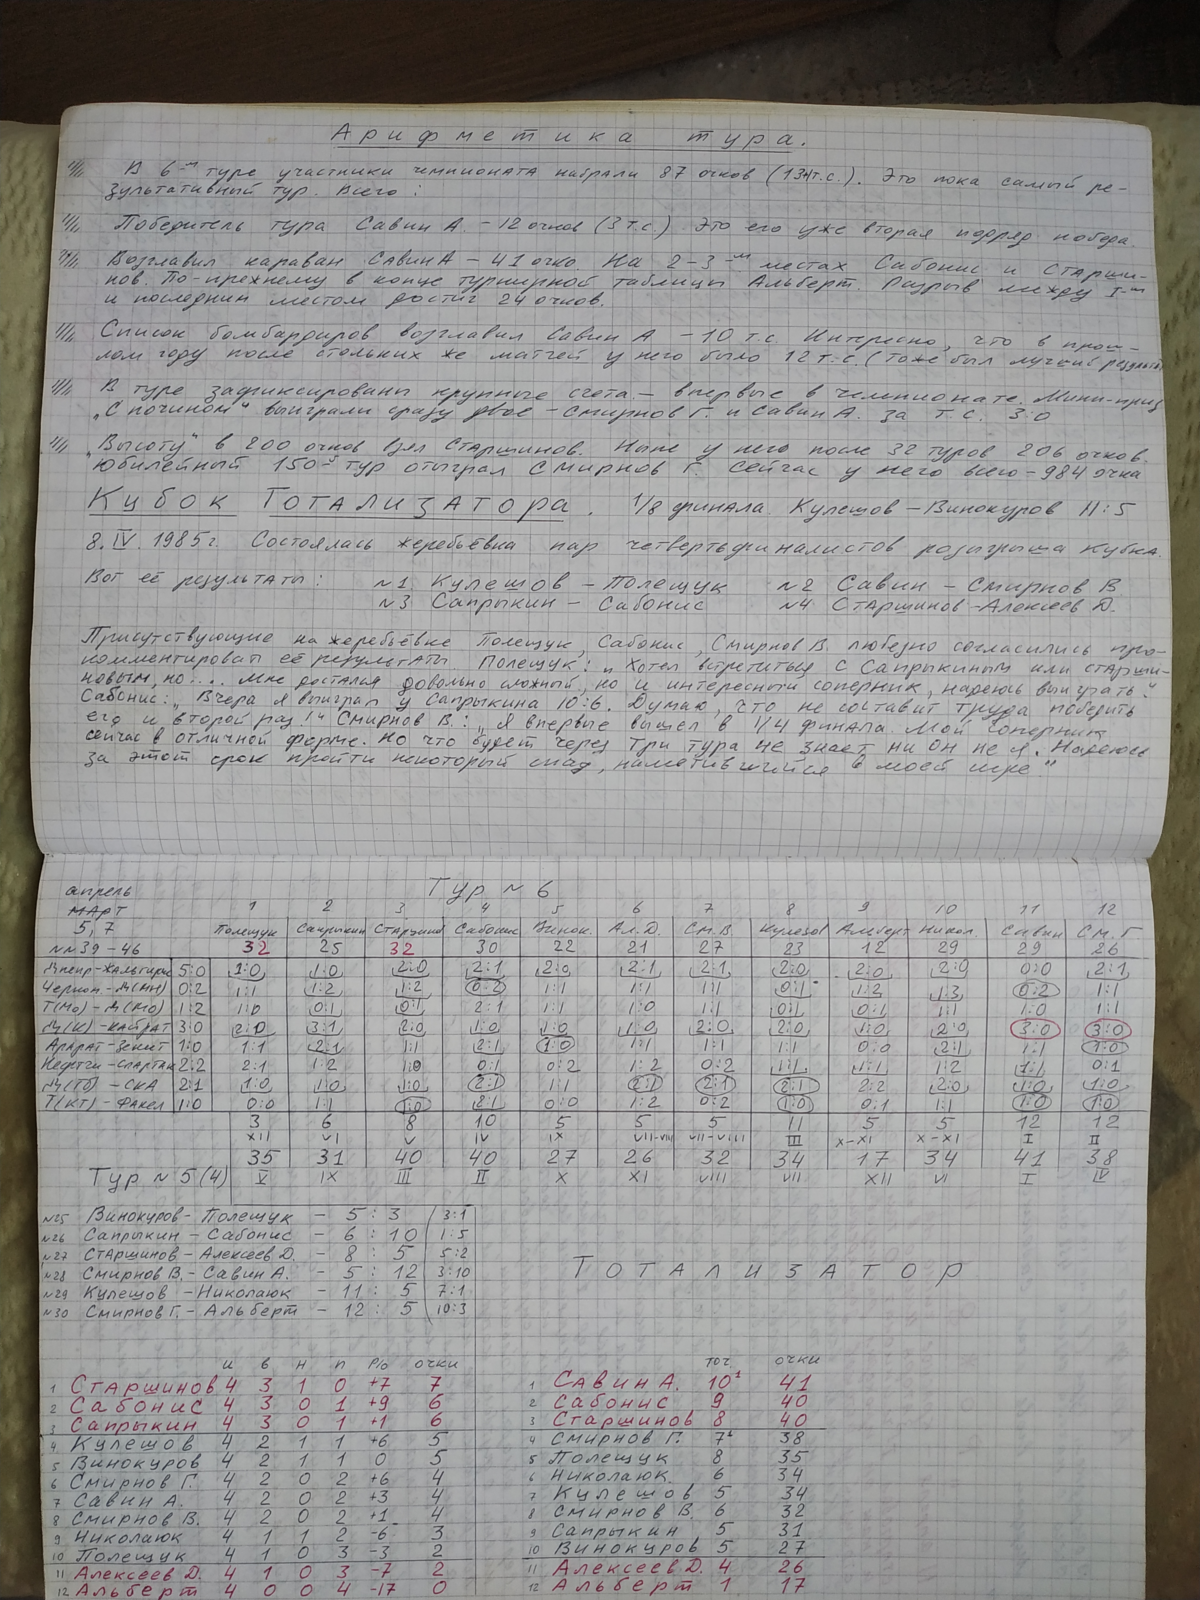 Арифметика тура.
В 6-м туре участники чемпионата набрали 87 очков (13 т.с.). Это пока самый ре-
зультативный тур. Всего:
Победитель тура Савин А. - 12 очков (3 т.с.) Это его уже вторая подряд победа.
Возглавил караван Савин А - 41 очко На 2-3-м местах Сабонис и Старши-
нов. По-прежнему в конце турнирной таблицы Альберт. Разрыв между I-м
и последним местом достиг 24 очков.
Список бомбардиров возглавил Савин А - 10 т.с. Интересно, что в прош-
лом году после стольких же матчей у него было 12 т.с. (тоже был лучший результ
В туре зафиксированы крупные счета - впервые в чемпионате. Мини-приз
„С почином" выиграли сразу двое - Смирнов Г. и Савин А. за т.с. 3:0
„Высоту" в 200 очков взял Старшинов. Ныне у него после 32 туров 206 очков.
Юбилейный 150-й тур отыграл Смирнов Г. Сейчас у него всего - 984 очка
Кубок Тотализатора. 1/8 финала. Кулешов - Винокуров 11:5
8. IV. 1985г. Состоялась жеребьёвка пар четвертьфиналистов розыгрыша Кубка.
Вот её результаты: №1 Кулешов - Полещук №2 Савин - Смирнов В.
№3 Сапрыкин - Сабонис №4 Старшинов - Алексеев Д.
Присутствующие на жеребьёвке Полещук, Сабонис, Смирнов В. любезно согласились про-
комментировать её результаты. Полещук: „Хотел встретиться с Сапрыкиным или Старши-
новым, но.... Мне достался довольно сложный, но и интересный соперник, надеюсь выиграть."
Сабонис: „Вчера я выиграл у Сапрыкина 10:6. Думаю, что не составит труда победить
его и второй раз!" Смирнов В.: „Я впервые вышел в 1/4 финала. Мой соперник
сейчас в отличной форме. Но что будет через три тура не знает ни он не я. Надеюсь
за этот срок пройти некоторый спад, наметившийся в моей игре"
апрель Тур №6
МАРТ 1 2 3 4 5 6 7 8 9 10 11 12
5, 7 Полещук Сапрыкин Старшинов Сабонис Винок. Ал. Д. См. В Кулешов Альберт Никол. Савин См. Г
№№ 39-46 32 25 32 30 22 21 27 23 12 29 29 26
Днепр - Жальгирис 5:0 1:0 1:0 2:0 2:1 2:0 2:1 2:1 2:0 2:0 2:0 0:0 2:1
Черном - Д(Мн) 0:2 1:1 1:2 1:2 0:2 1:1 1:1 1:1 0:1 1:2 1:3 0:2 1:1
Т(Мо) - Д(Мо) 1:2 1:0 0:1 0:1 2:1 1:1 1:0 1:1 0:1 0:1 1:1 1:0 1:1
Д(К) - Кайрат 3:0 2:0 3:1 2:0 1:0 1:0 1:0 2:0 2:0 1:0 2:0 3:0 3:0
Арарат - Зенит 1:0 1:1 2:1 1:1 2:1 1:0 1:1 1:1 1:1 0:0 2:1 1:1 1:0
Нефтчи - Спартак 2:2 2:1 1:2 1:0 0:1 0:2 1:2 0:2 1:1 1:1 1:2 1:1 0:1
Д(Тб) - СКА 2:1 1:0 1:0 1:0 2:1 1:1 2:1 2:1 2:1 2:2 2:0 1:0 1:0
Т(КТ) - Факел 1:0 0:0 1:1 1:0 2:1 0:0 1:2 0:2 1:0 0:1 1:1 1:0 1:0
3 6 8 10 5 5 5 11 5 5 12 12
XII VI V IV IX VII-VIII VII-VIII III X-XI X-XI I II
35 31 40 40 27 26 32 34 17 34 41 38
Тур №5 (4) V IX III II X XI VIII VII XII VI I IV
№25 Винокуров - Полещук - 5 : 3 (3:1
№26 Сапрыкин - Сабонис - 6 : 10 1:5
№27 Старшинов - Алексеев Д. - 8 : 5 5:2
№28 Смирнов В. - Савин А. - 5 : 12 3:10
№29 Кулешов - Николаюк - 11 : 5 7:1
№30 Смирнов Г. - Альберт - 12 : 5 10:3
Тотализатор
И В Н П Р/о очки
1 Старшинов 4 3 1 0 +7 7
2 Сабонис 4 3 0 1 +9 6
3 Сапрыкин 4 3 0 1 +1 6
4 Кулешов 4 2 1 1 +6 5
5 Винокуров 4 2 1 1 0 5
6 Смирнов Г. 4 2 0 2 +6 4
7 Савин А. 4 2 0 2 +3 4
8 Смирнов В. 4 2 0 2 +1 4
9 Николаюк 4 1 1 2 -6 3
10 Полещук 4 1 0 3 -3 2
11 Алексеев Д. 4 1 0 3 -7 2
12 Альберт 4 0 0 4 -17 0
точ очки
1 Савин А. 10¹ 41
2 Сабонис 9 40
3 Старшинов 8 40
4 Смирнов Г. 7¹ 38
5 Полещук 8 35
6 Николаюк 6 34
7 Кулешов 5 34
8 Смирнов В. 6 32
9 Сапрыкин 5 31
10 Винокуров 5 27
11 Алексеев Д. 4 26
12 Альберт 1 17